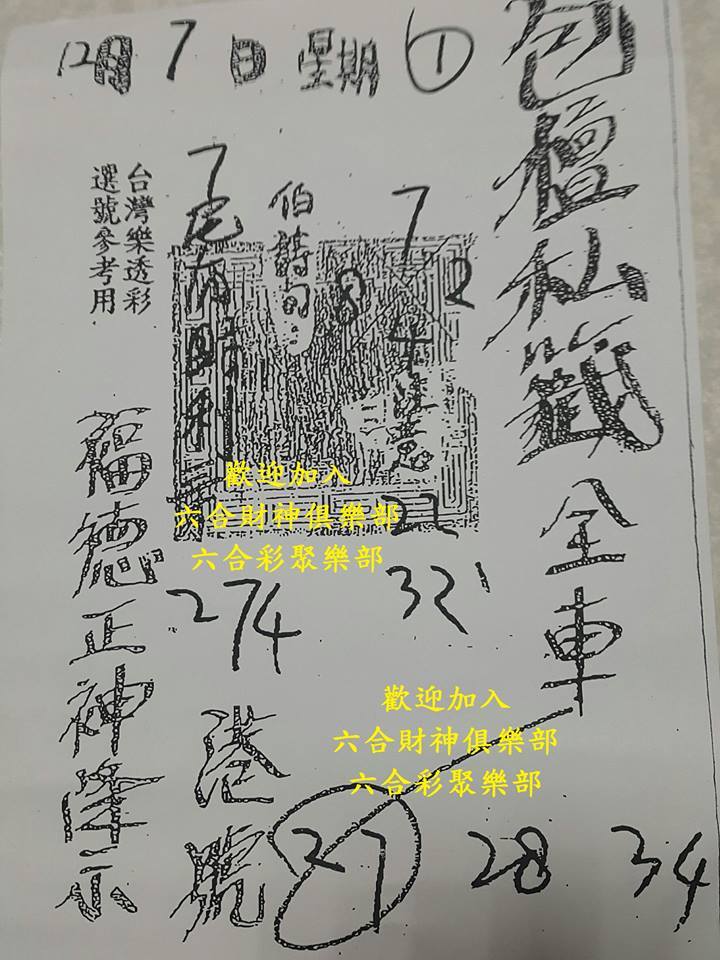 12月 7 日 星期 1
包壇私籤全車
台灣樂透彩
選號參考用
7
2
伯詩句
8
7尾有勝利
22
32
274
歡迎加入
六合財神俱樂部
六合彩聚樂部
福德正神降示
港號
27 28 34
歡迎加入
六合財神俱樂部
六合彩聚樂部